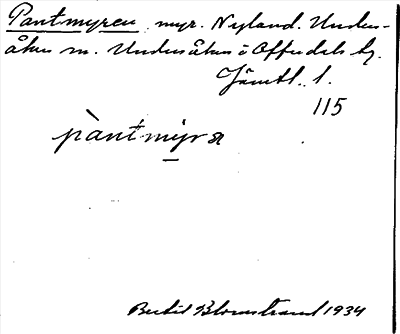 Pantmyren myr. Nyland. Unders-
åkers sn. Undersåkers o Offerdals tg.
Jämtl. l.
115
pàntmỳra
Bertil Blomstrand 1934